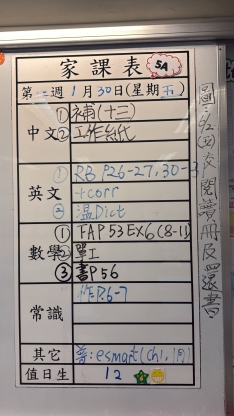 家課表 5A
第二週1月30日(星期五)
中文 ①補(十三)
②工作紙
英文 ① RB P.26-27, 30-31
+corr
② 溫Dict
數學 ① FAP53 EX6(8-11)
② 單工
③ 書P56
常識 作P.6-7
其它 普:esmart(ch1,1月)
值日生 12
交閱讀冊及還書